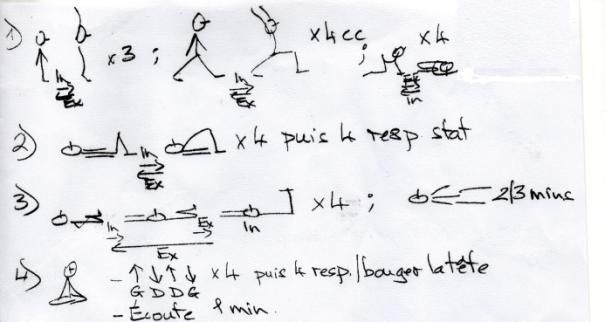 1) x3 ; x4 cc ; x4
In Ex In Ex Ex In
2) In Ex x4 puis 4 resp. stat
3) In Ex In x4 ; 2/3 mins
Ex
4) - ↑ ↓ ↑ ↓ x4 puis 4 resp./bouger la tête
G D D G
- Écoute 1 min.